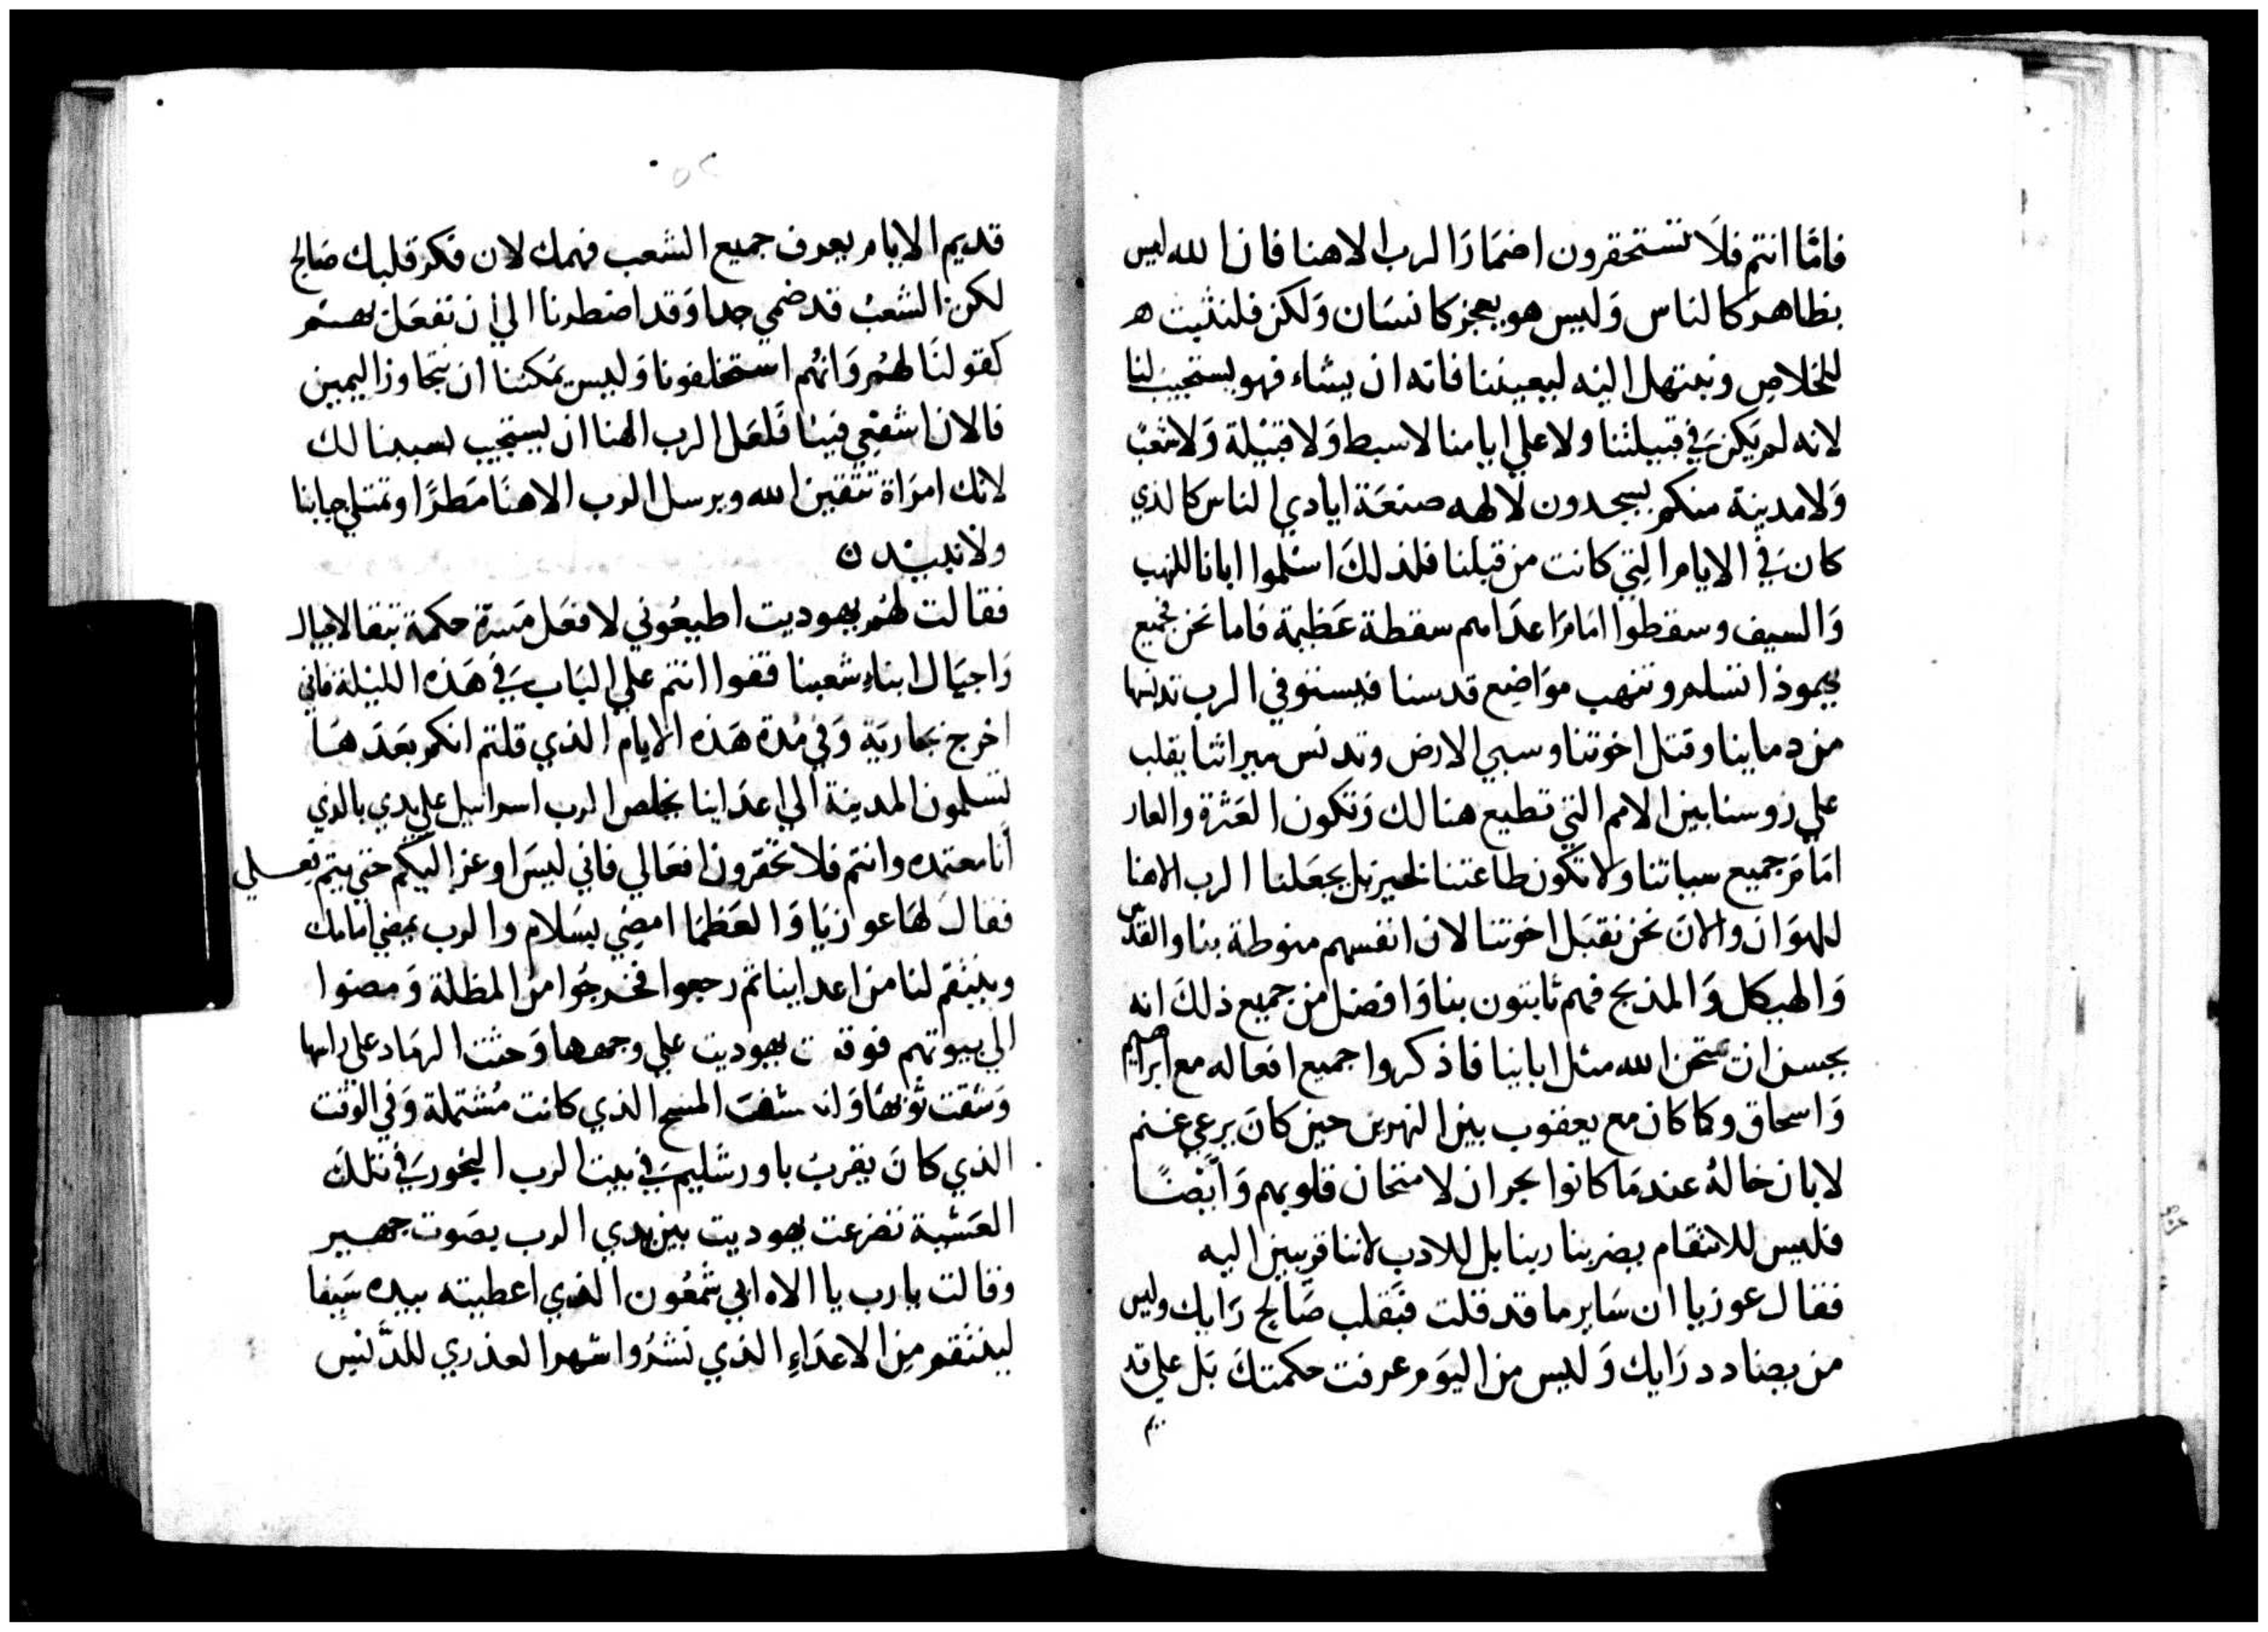 فامّا انتم فلا تستحقرون اضمار الرب الاهنا فان الله ليس
بظاهر كالناس وليس هو بعجز كانسان ولكن فلنثبت
للخلاص ونبتهل اليه ليعيننا فانه ان يشاء فهو يستجيب لنا
لانه لم يكن في قبيلتنا ولا علي ايامنا لا سبط ولا قبيلة ولا شعب
ولا مدينة منكم يسجدون لالهه صنعة ايادي الناس كالذي
كان في الايام التي كانت من قبلنا فلذلك اسلموا ابانا للنهب
والسيف وسقطوا امام اعدامهم سقطة عظيمة فاما نحن فجميع
يهوذا تسلم وتنهب مواضع قدسنا فيستوفي الرب تدنسها
من دماينا وقتل اخوتنا وسبي الارض وتدنس ميراثنا يقلب
علي روسنا بين الامم التي تطيع هنالك وتكون العثرة والعار
امام جميع سباتنا ولا تكون طاعتنا لخير بل يجعلنا الرب الاهنا
للهوان والان نحن نقبل اخوتنا لان انفسهم منوطة بنا والقدس
والهيكل والمذبح فهم ثابتون بنا وافضل من جميع ذلك انه
يحسن ان يمتحن الله مثل ابايينا فاذكروا جميع افعاله مع ابراهيم
واسحاق وكما كان مع يعقوب بين النهرين حين كان يرعي غنم
لابان خاله عندما كانوا بحران لامتحان قلوبهم وايضًا
فليس للانتقام يضربنا ربنا بل للادب لاننا قريبين اليه
فقال عوزيا ان ساير ما قد قلت فبقلب صالح رايك وليس
من يضادد رايك وليس من اليوم عرفت حكمتك بل علي قد
يم
٥٢
قديم الايام يعرف جميع الشعب فهمك لان فكر قلبك صالح
لكن الشعب قد ضمي جدا وقد اضطرنا الي ان نفعل بهم
كقولنا لهم وانهم استحلفونا وليس يمكننا ان نتجاوز اليمين
فالان اشفعي فينا فلعل الرب الهنا ان يستجيب لك
لانك امراة تتقين الله ويرسل الرب الاهنا مطرًا وتمتلي جبابنا
ولا نبيد
فقالت لهم يهوديت اطيعوني لافعل مسرة حكمة تبقا لاجيال
واجيال ابناء شعبنا فقفوا انتم علي الباب في هذه الليلة فاني
اخرج بجاريتي وفي مدة هذه الايام الذي قلتم انكم بعدها
تسلمون المدينة الي اعداينا يخلص الرب اسراييل علي يدي بالذي
أنا معتمده وانتم فلا تحقرون افعالي فاني ليس اوعز اليكم حتي يتم فعلي
فقال لها عوزيا والعظما امضي بسلام والرب يمضي امامك
وينتقم لنا من اعداينا ثم رجعوا فخرجوا من المظلة ومضوا
الي بيوتهم فوقعت يهوديت علي وجهها وحثت الرماد علي راسها
وشقت ثوبها المسح الذي كانت مشتملة وفي الوقت
الذي كان يقرب باورشليم في بيت الرب البخور في تلك
العشية تضرعت يهوديت بين يدي الرب بصوت جهير
وقالت يارب يا الاه ابي شمعون الذي اعطيته بيده سيفا
لينتقم من الاعداء الذي نشروا شهر العذري للدنس